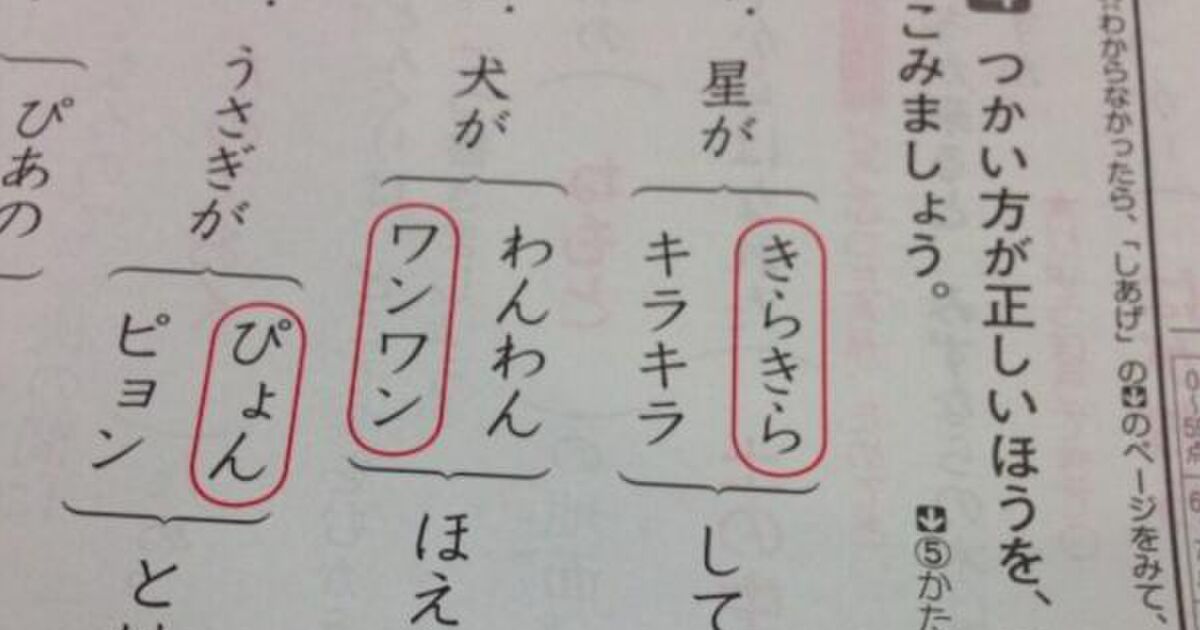 ☆わからなかったら、「しあげ」の⬇のページをみて、
つかい方が正しいほうを、
こみましょう。
⬇⑤かた
星が
きらきら
キラキラ
して
犬が
わんわん
ワンワン
ほえ
うさぎが
ぴょん
ピョン
と
ぴあの